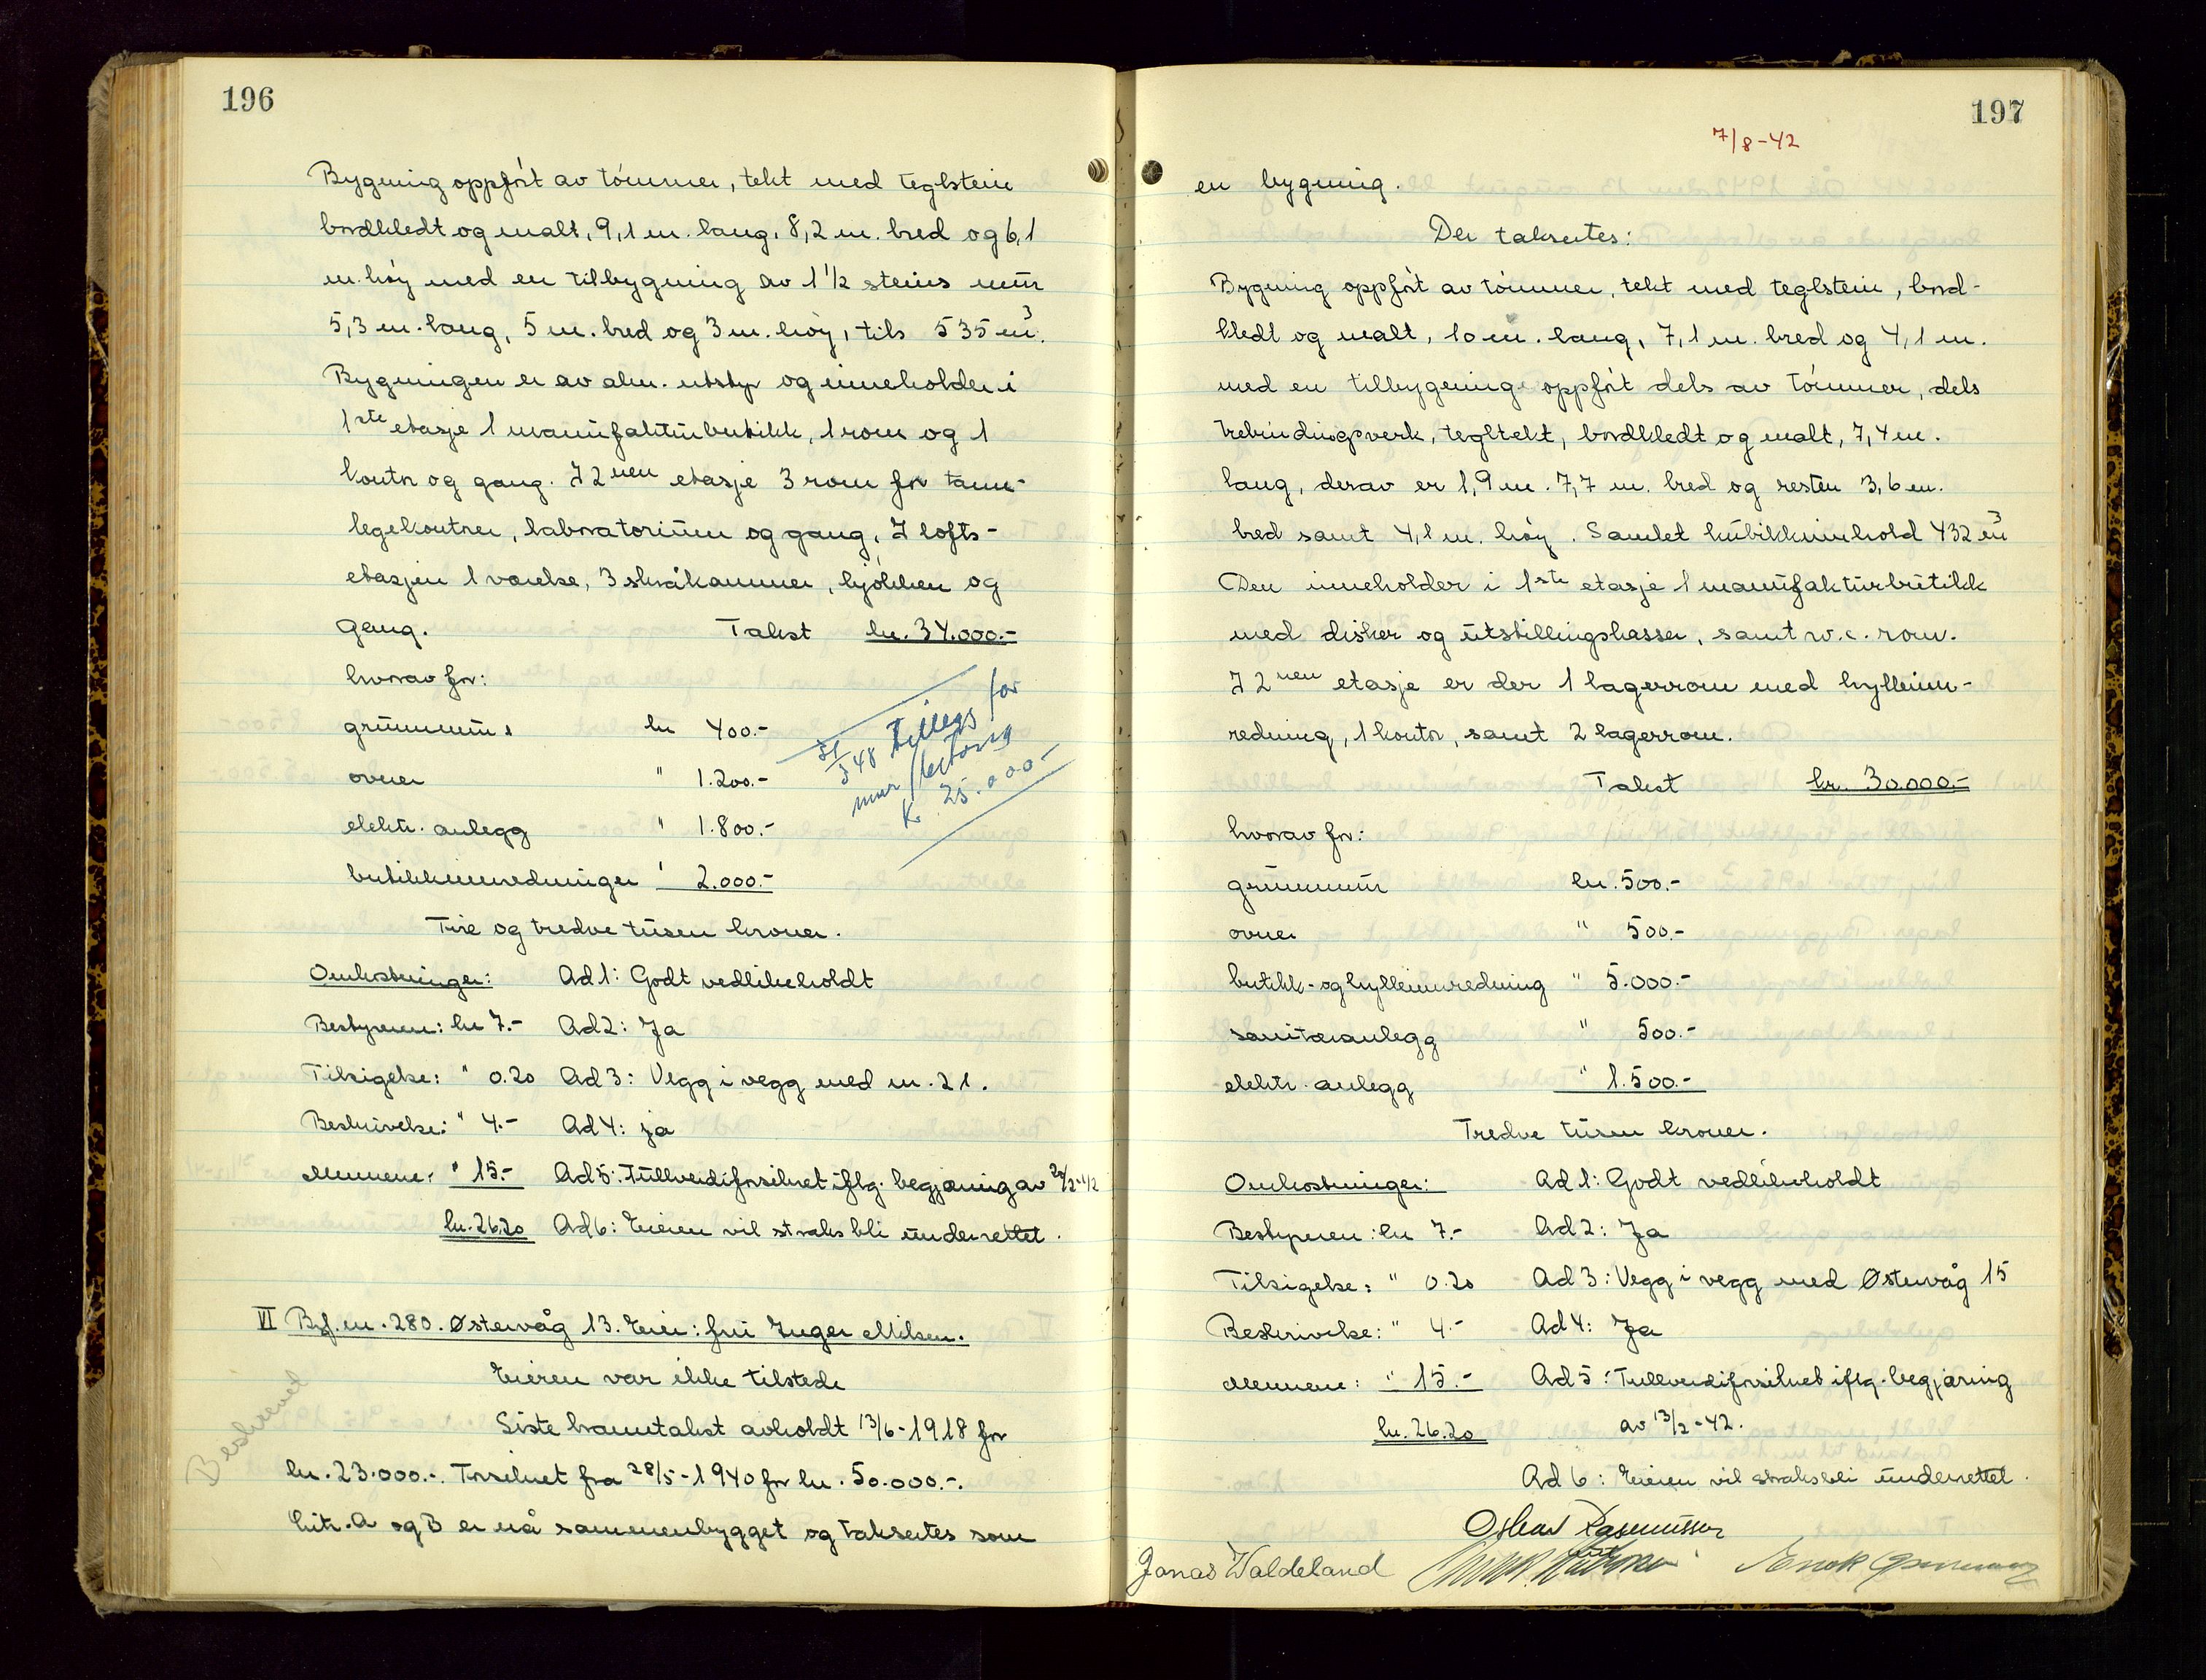 196
Bygning oppført av tömmer, tekt med teglstein
bordkledt og malt, 9,1 m. lang, 8,2 m. bred og 6,1
m. høy med en tilbygning av 1 1/2 steins mur
5,3 m. lang, 5 m. bred og 3 m. høy, tils 535 m³.
Bygningen er av alm. utstyr og inneholder i
1ste etasje 1 manufakturbutikk, 1 rom og 1
kontor og gang. I 2nen etasje 3 rom for tann-
legekontorer, laboratorium og gang, I lofts-
etasjen 1 værelse, 3 skråkammer, kjökken og
gang. Takst kr. 34.000.-
hvorav for:
grunnmur kr 400.-
ovner " 1.200.-
elektr. anlegg " 1.800.-
butikkinnredninger " 2.000.-
48 Tillegg for
K. 25.000.-
Fire og tredve tusen kroner.
Omkostninger: Ad 1: Godt vedlikeholdt
Bestyreren: kr 7.- Ad 2: Ja
Tilsigelse: " 0.20 Ad 3: Vegg i vegg med nr. 21.
Beskrivelse: " 4.- Ad 4: ja
Mennene: " 15.- Ad 5: Fullverdiforsikret iflg. begjæring av 20/2-42
kr. 26.20 Ad 6: Eieren vil straks bli underrettet.
VI Brf. nr. 280. Østervåg 13. Eier: fru Inger Nilsen.
Eieren var ikke tilstede
Beskrevet
Siste branntakst avholdt 13/6-1918 for
kr. 23.000.-. Forsikret fra 28/5-1940 for kr. 50.000.-.
Litr. A og B er nå sammenbygget og takseres som
197
7/8-42
en bygning.
Der takseres:
Bygning oppført av tömmer, tekt med teglstein, bord-
kledt og malt, 10 m. lang, 7,1 m. bred og 4,1 m.
med en tilbygning oppført dels av tömmer, dels
trebindingsverk, tegltekt, bordkledt og malt, 7,4 m.
lang, derav er 1,9 m. 7,7 m. bred og resten 3,6 m.
bred samt 4,1 m. høy. Samlet kubikkinnhold 432 m³
Den inneholder i 1ste etasje 1 manufakturbutikk
med disker og utstillingskasser, samt w.c. rom.
I 2nen etasje er der 1 lagerrom med hylleinn-
redning, 1 kontor, samt 2 lagerrom.
Takst kr. 30.000.-
hvorav for:
grunnmur kr. 500.-
ovner " 500.-
butikk- og hylleinnredning " 5.000.-
sanitæranlegg " 500.-
elektr. anlegg " 1.500.-
Tredve tusen kroner.
Omkostninger: Ad 1: Godt vedlikeholdt
Bestyreren: kr 7.- Ad 2: Ja
Tilsigelse: " 0.20 Ad 3: Vegg i vegg med Østervåg 15
Beskrivelse: " 4.- Ad 4: Ja
Mennene: " 15.- Ad 5: Fullverdiforsikret iflg. begjæring
kr. 26.20 av 13/2-42.
Ad 6: Eieren vil straks bli underrettet.
Oskar Rasmussen
Jonas Waldeland